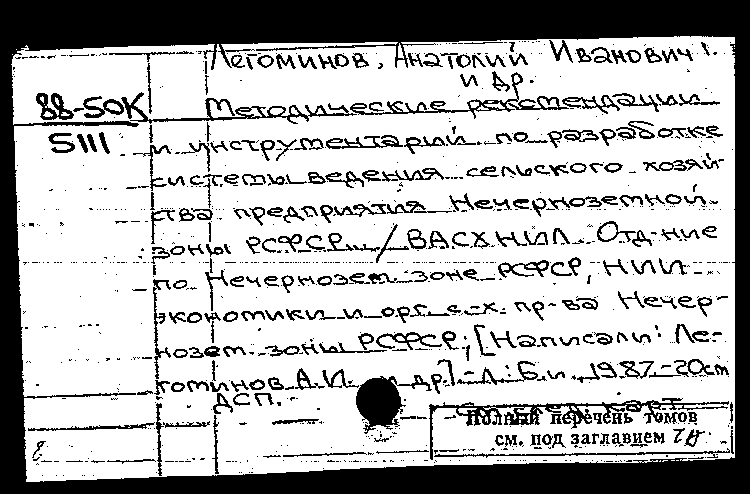 Легоминов, Анатолий Иванович
и др.
88-50К
5111
Методические рекомендации
и инструментарий по разработке
системы ведения сельского хозяй-
ства предприятия Нечерноземной
зоны РСФСР... / ВАСХНИЛ. Отд-ние
по Нечернозем. зоне РСФСР, НИИ
экономики и орг. с.-х. пр-ва Нечер-
нозем. зоны РСФСР; [Написали: Ле-
гоминов А.И. и др.].-Л.: Б.и., 1987.-20см
ДСП.-
Полный перечень томов
см. под заглавием